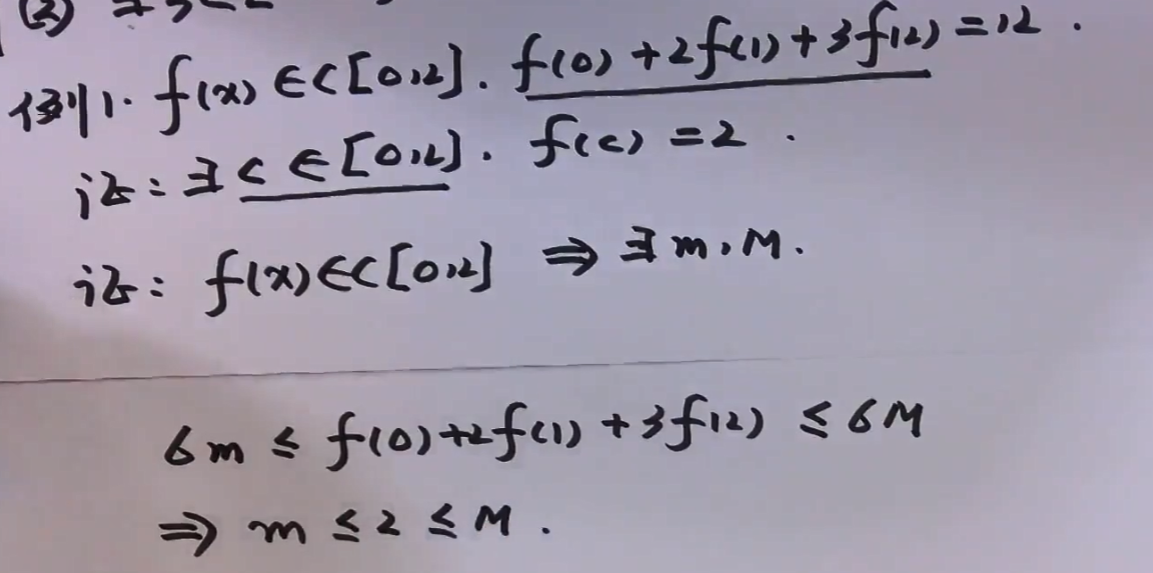 (2)
例1. f(x)∈C[0,2]. f(0)+2f(1)+3f(2)=12.
证: ∃ c ∈[0,2]. f(c)=2.
证: f(x)∈C[0,2] ⇒ ∃ m, M.
6m ≤ f(0)+2f(1)+3f(2) ≤ 6M
⇒ m ≤ 2 ≤ M.